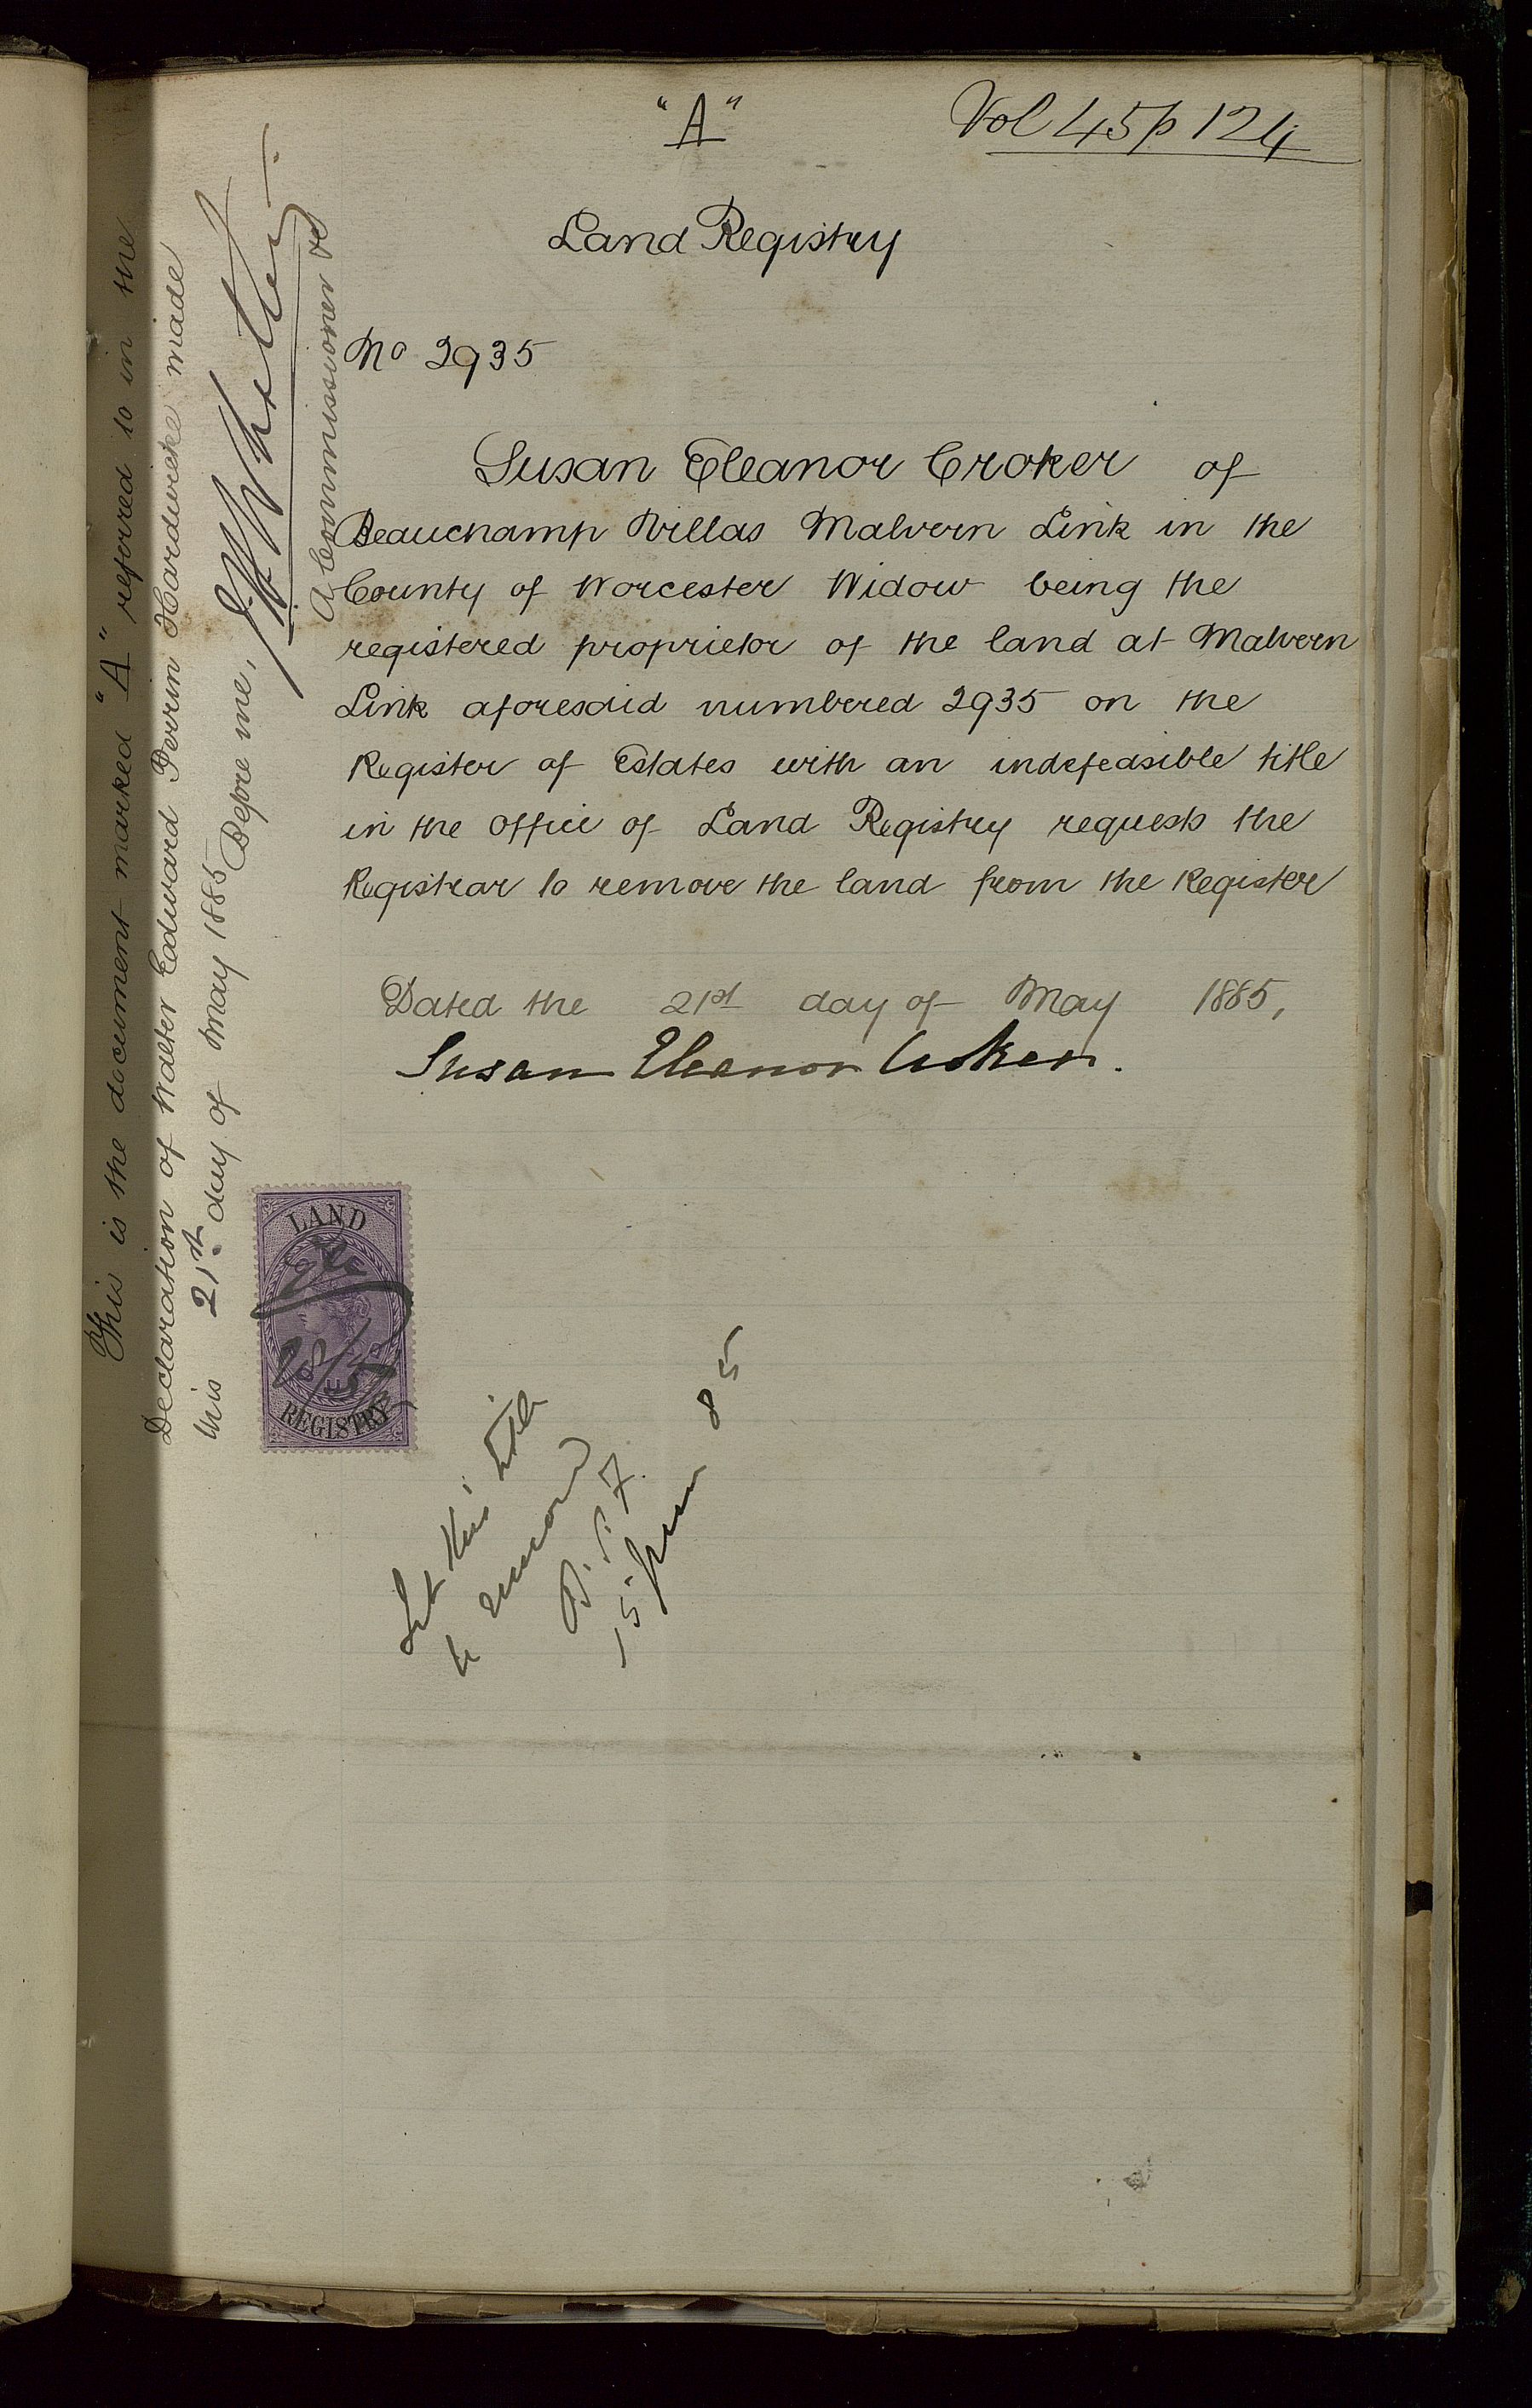 "A"
Vol 45 p 124
Land Registry
No 2935
Susan Eleanor Croker of
Beauchamp Villas Malvern Link in the
County of Worcester Widow being the
registered proprietor of the land at Malvern
Link aforesaid numbered 2935 on the
Register of Estates with an indefeasible title
in the Office of Land Registry requests the
Registrar to remove the land from the Register
Dated the 21st day of May 1885,
Susan Eleanor Croker.
This is the document marked "A" referred to in the
Declaration of Walter Edward Perrin Hardwicke made
this 21st day of May 1885 Before me,
A Commissioner &c
LAND
REGISTRY
Let this title
be removed
15 June 85